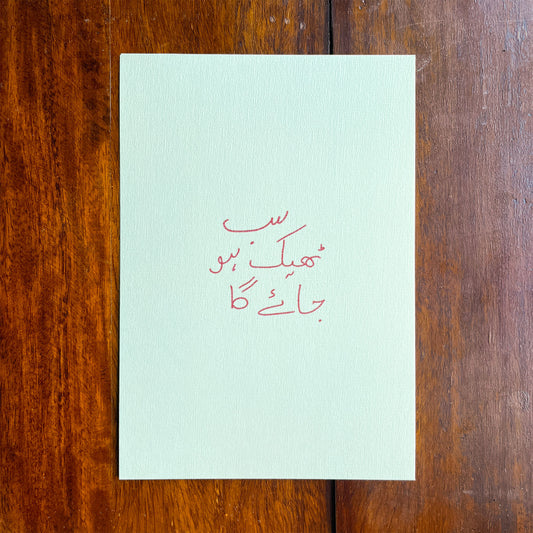 سب
ٹھیک ہو
جائے گا